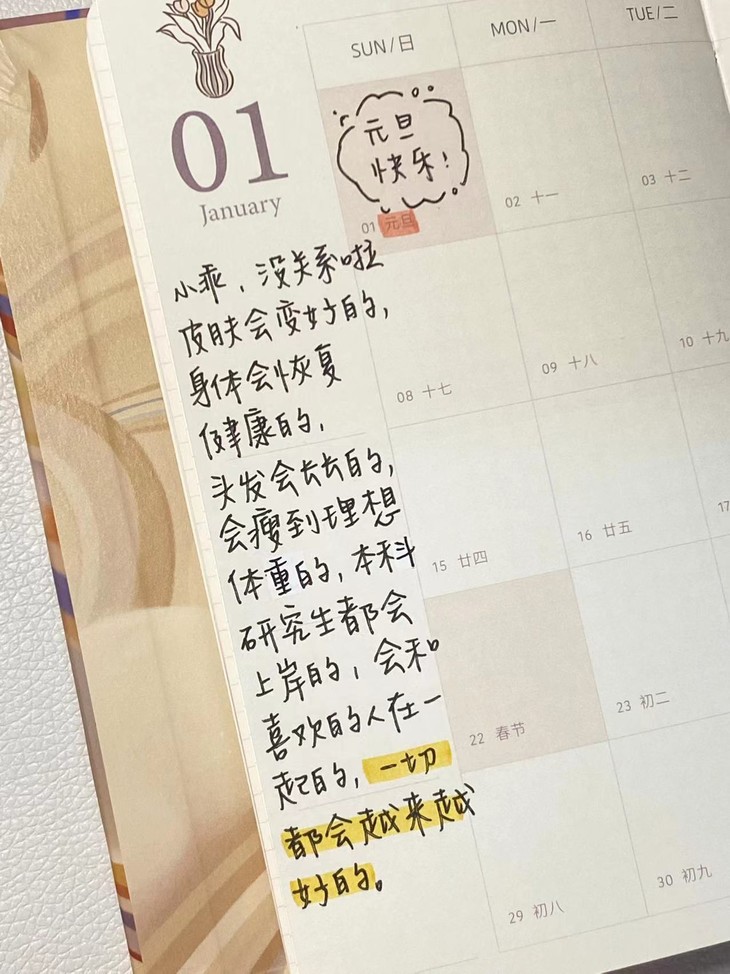 01
January
SUN/日
MON/一
TUE/二
元旦
快乐!
01 元旦
02 十一
03 十二
08 十七
09 十八
10 十九
15 廿四
16 廿五
17
22 春节
23 初二
29 初八
30 初九
小乖,没关系啦
皮肤会变好的,
身体会恢复
健康的,
头发会长长的,
会瘦到理想
体重的,本科
研究生都会
上岸的,会和
喜欢的人在一
起的,一切
都会越来越
好的。